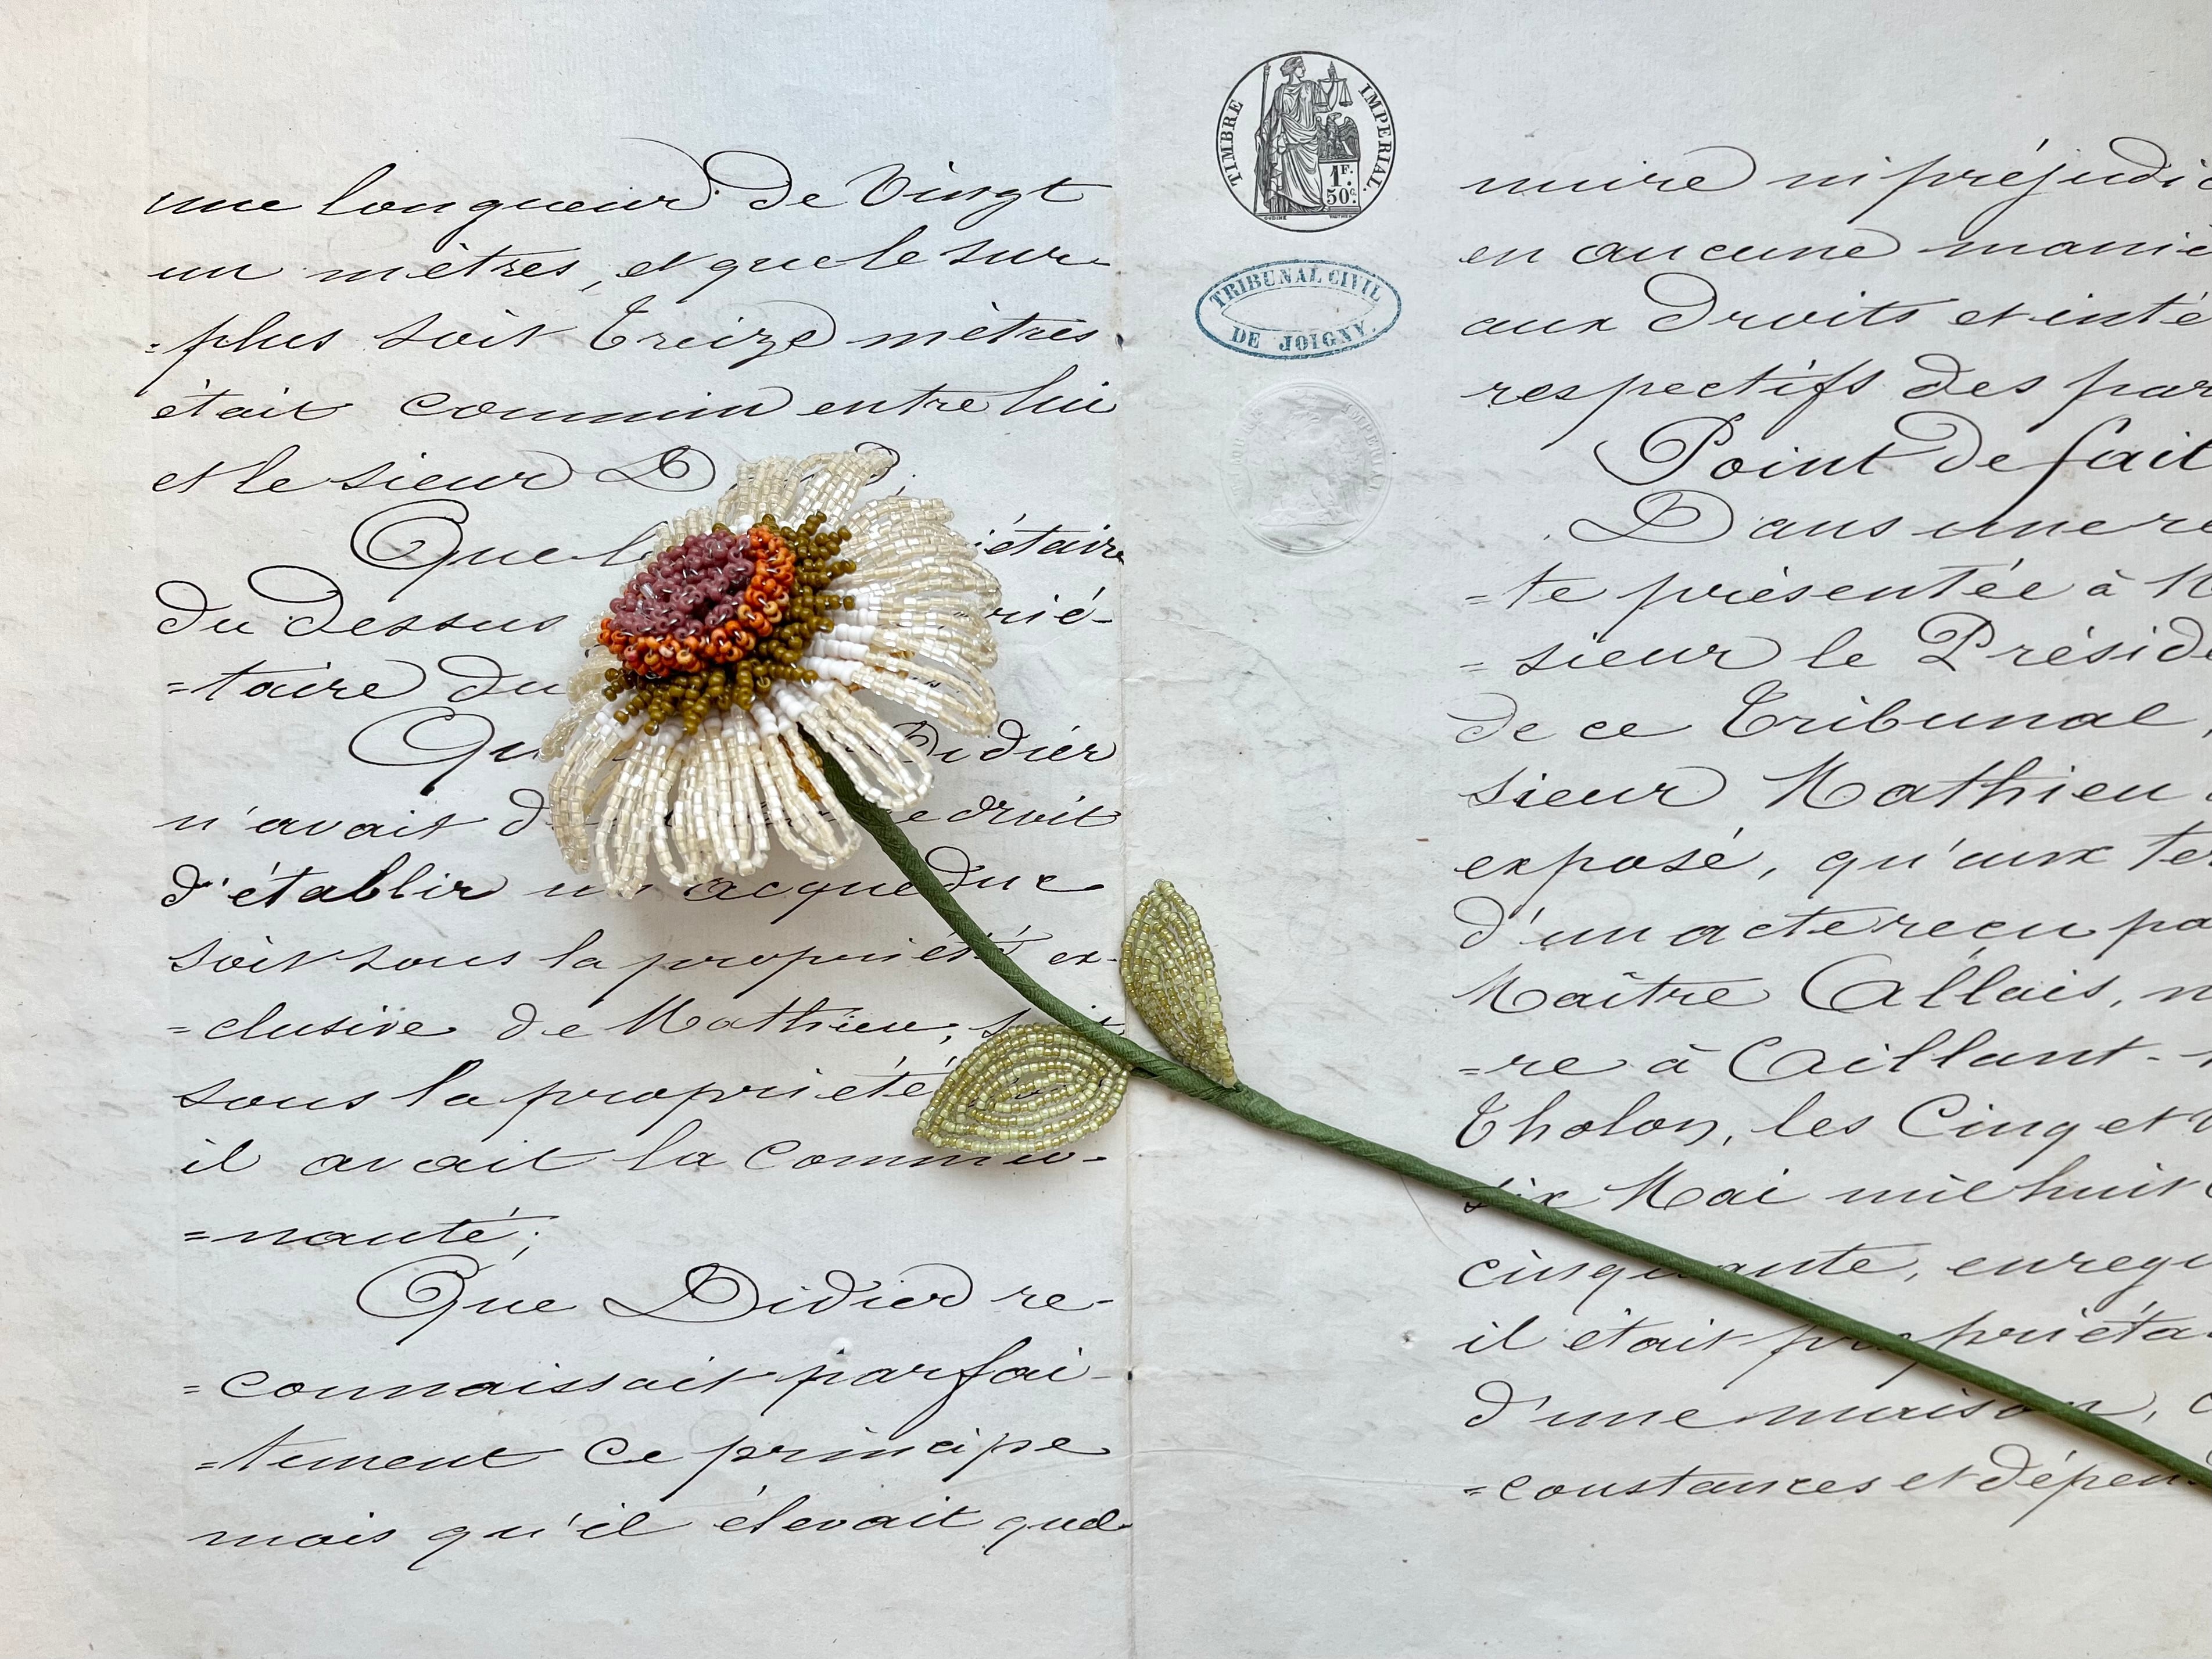 une longueur de Vingt
un mètres, et que le sur-
=plus soit Treize mètres
était commun entre lui
et le sieur D
Que l
du dessus
=taire du
Didier
n'avait droit
d'établir acqueduc
soit sous la propriété ex-
=clusive de Mathieu, soit
sous la propriété
il avait la commu-
=nauté;
Que Didier re-
=connaissait parfai-
=tement ce principe
mais qu'il élevait quel
TIMBRE IMPERIAL.
1F.
50c.
TRIBUNAL CIVIL
DE JOIGNY.
nuire ni préjudic
en aucune maniè
aux droits et inté
respectifs des par
Point de fait
Dans une re
=te présentée à M
=sieur le Préside
de ce Tribunal,
sieur Mathieu
exposé, qu'aux ter
d'un acte reçu pa
Maître Allais, n
=re à Aillant-
Tholon, les Cinq et
six Mai mil huit
cinquante, enregi
il était propriéta
d'une maison,
=constances et dépen